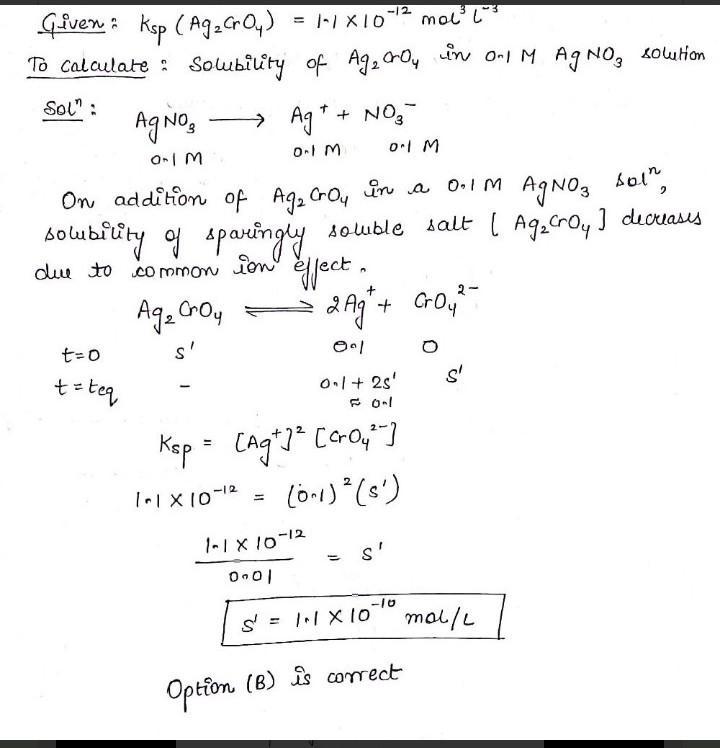 Given : Ksp (Ag₂CrO₄) = 1.1 X 10⁻¹² mol³ L⁻³
To calculate : Solubility of Ag₂CrO₄ in 0.1 M AgNO₃ solution
Solⁿ : AgNO₃ ⟶ Ag⁺ + NO₃⁻
0.1 M 0.1 M 0.1 M
On addition of Ag₂CrO₄ in a 0.1 M AgNO₃ solⁿ,
solubility of sparingly soluble salt [Ag₂CrO₄] decreases
due to common ion effect.
Ag₂CrO₄ ⇌ 2Ag⁺ + CrO₄²⁻
t=0 s' 0.1 0
t = teq - 0.1 + 2s' s'
≈ 0.1
Ksp = [Ag⁺]² [CrO₄²⁻]
1.1 X 10⁻¹² = (0.1)² (s')
1.1 X 10⁻¹² / 0.01 = s'
s' = 1.1 X 10⁻¹⁰ mol/L
Option (B) is correct